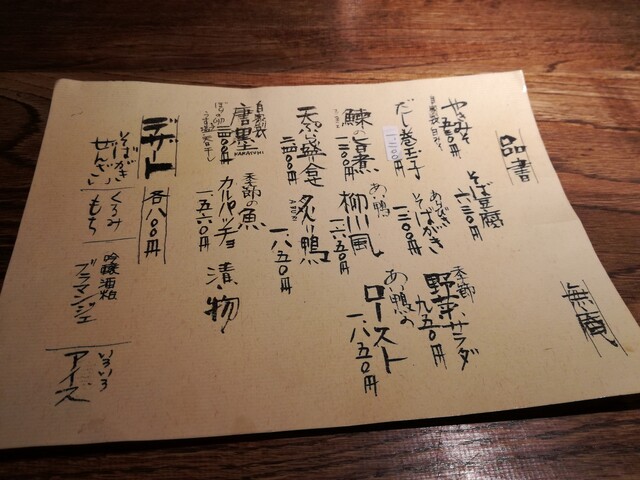 品書
やきみそ
自家製白みそ
五五〇円
そば豆腐
六三〇円
季節サラダ
野菜
九五〇円
だし巻玉子
一一〇〇円
あらびき
そばがき
一二〇〇円
あい鴨の
ロースト
一八五〇円
鰊の旨煮
一二〇〇円
あい鴨
柳川風
一六五〇円
天ぷら盛合
二四〇〇円
炙り鴨
一八五〇円
自家製
唐墨
KARASUMI
季節の魚
カルパッチョ
一五六〇円
漬物
デザート
各八〇〇円
そばがき
ぜんざい
くるみ
もち
吟醸酒粕
ブラマンジェ
いろいろ
アイス
無庵